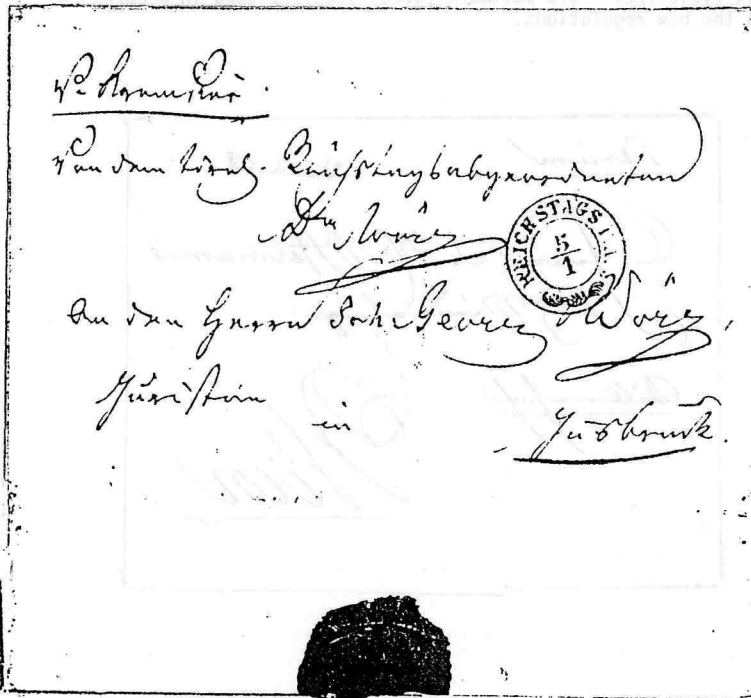 the new regulations.
v. Kremsier.
Von dem tirol. Reichstagsabgeordneten
Dr Wörz
REICHSTAGS
5
1
An den Herrn Joh: Georg Wörz,
Juristen in Insbruck.